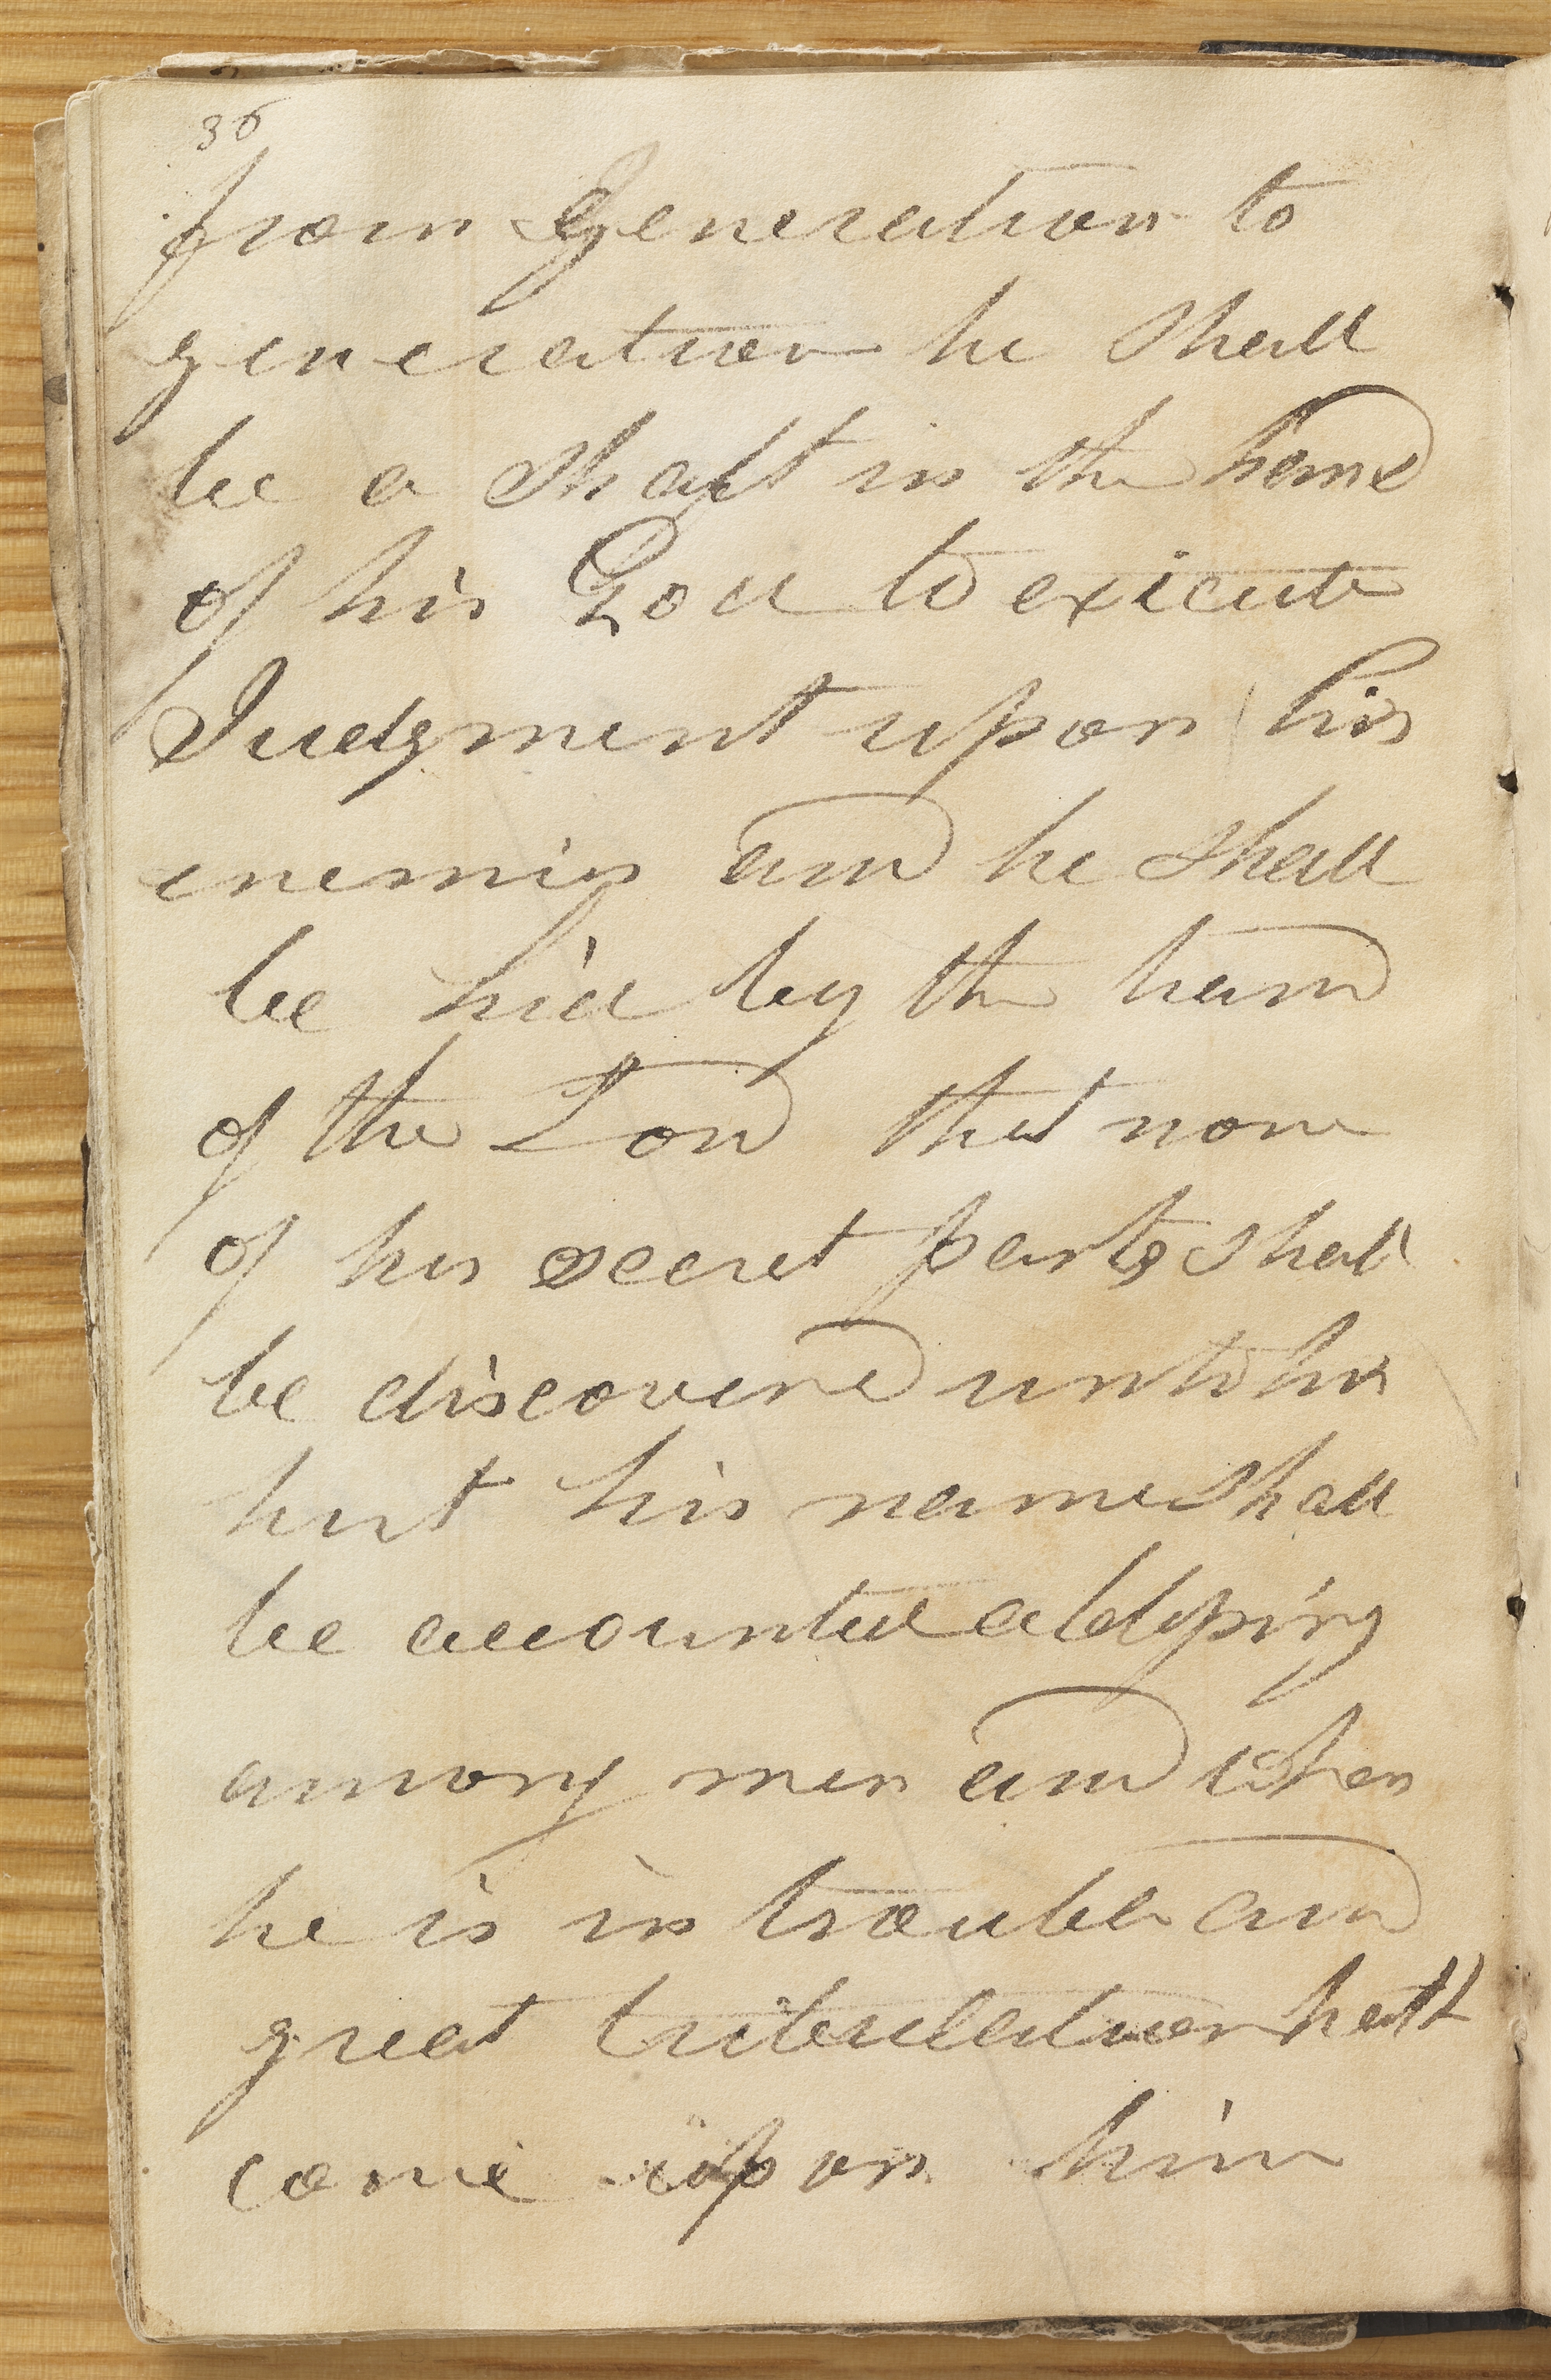 36
from Generation to
generation he shall
be a shaft in the hand
of his God to exicute
Judgment upon his
enemies and he shall
be hid by the hand
of the Lord that none
of his secret parts shall
be discovered unto his
hurt his name shall
be accounted a blessing
among men and when
he is in trouble and
great tribulation hath
come upon him